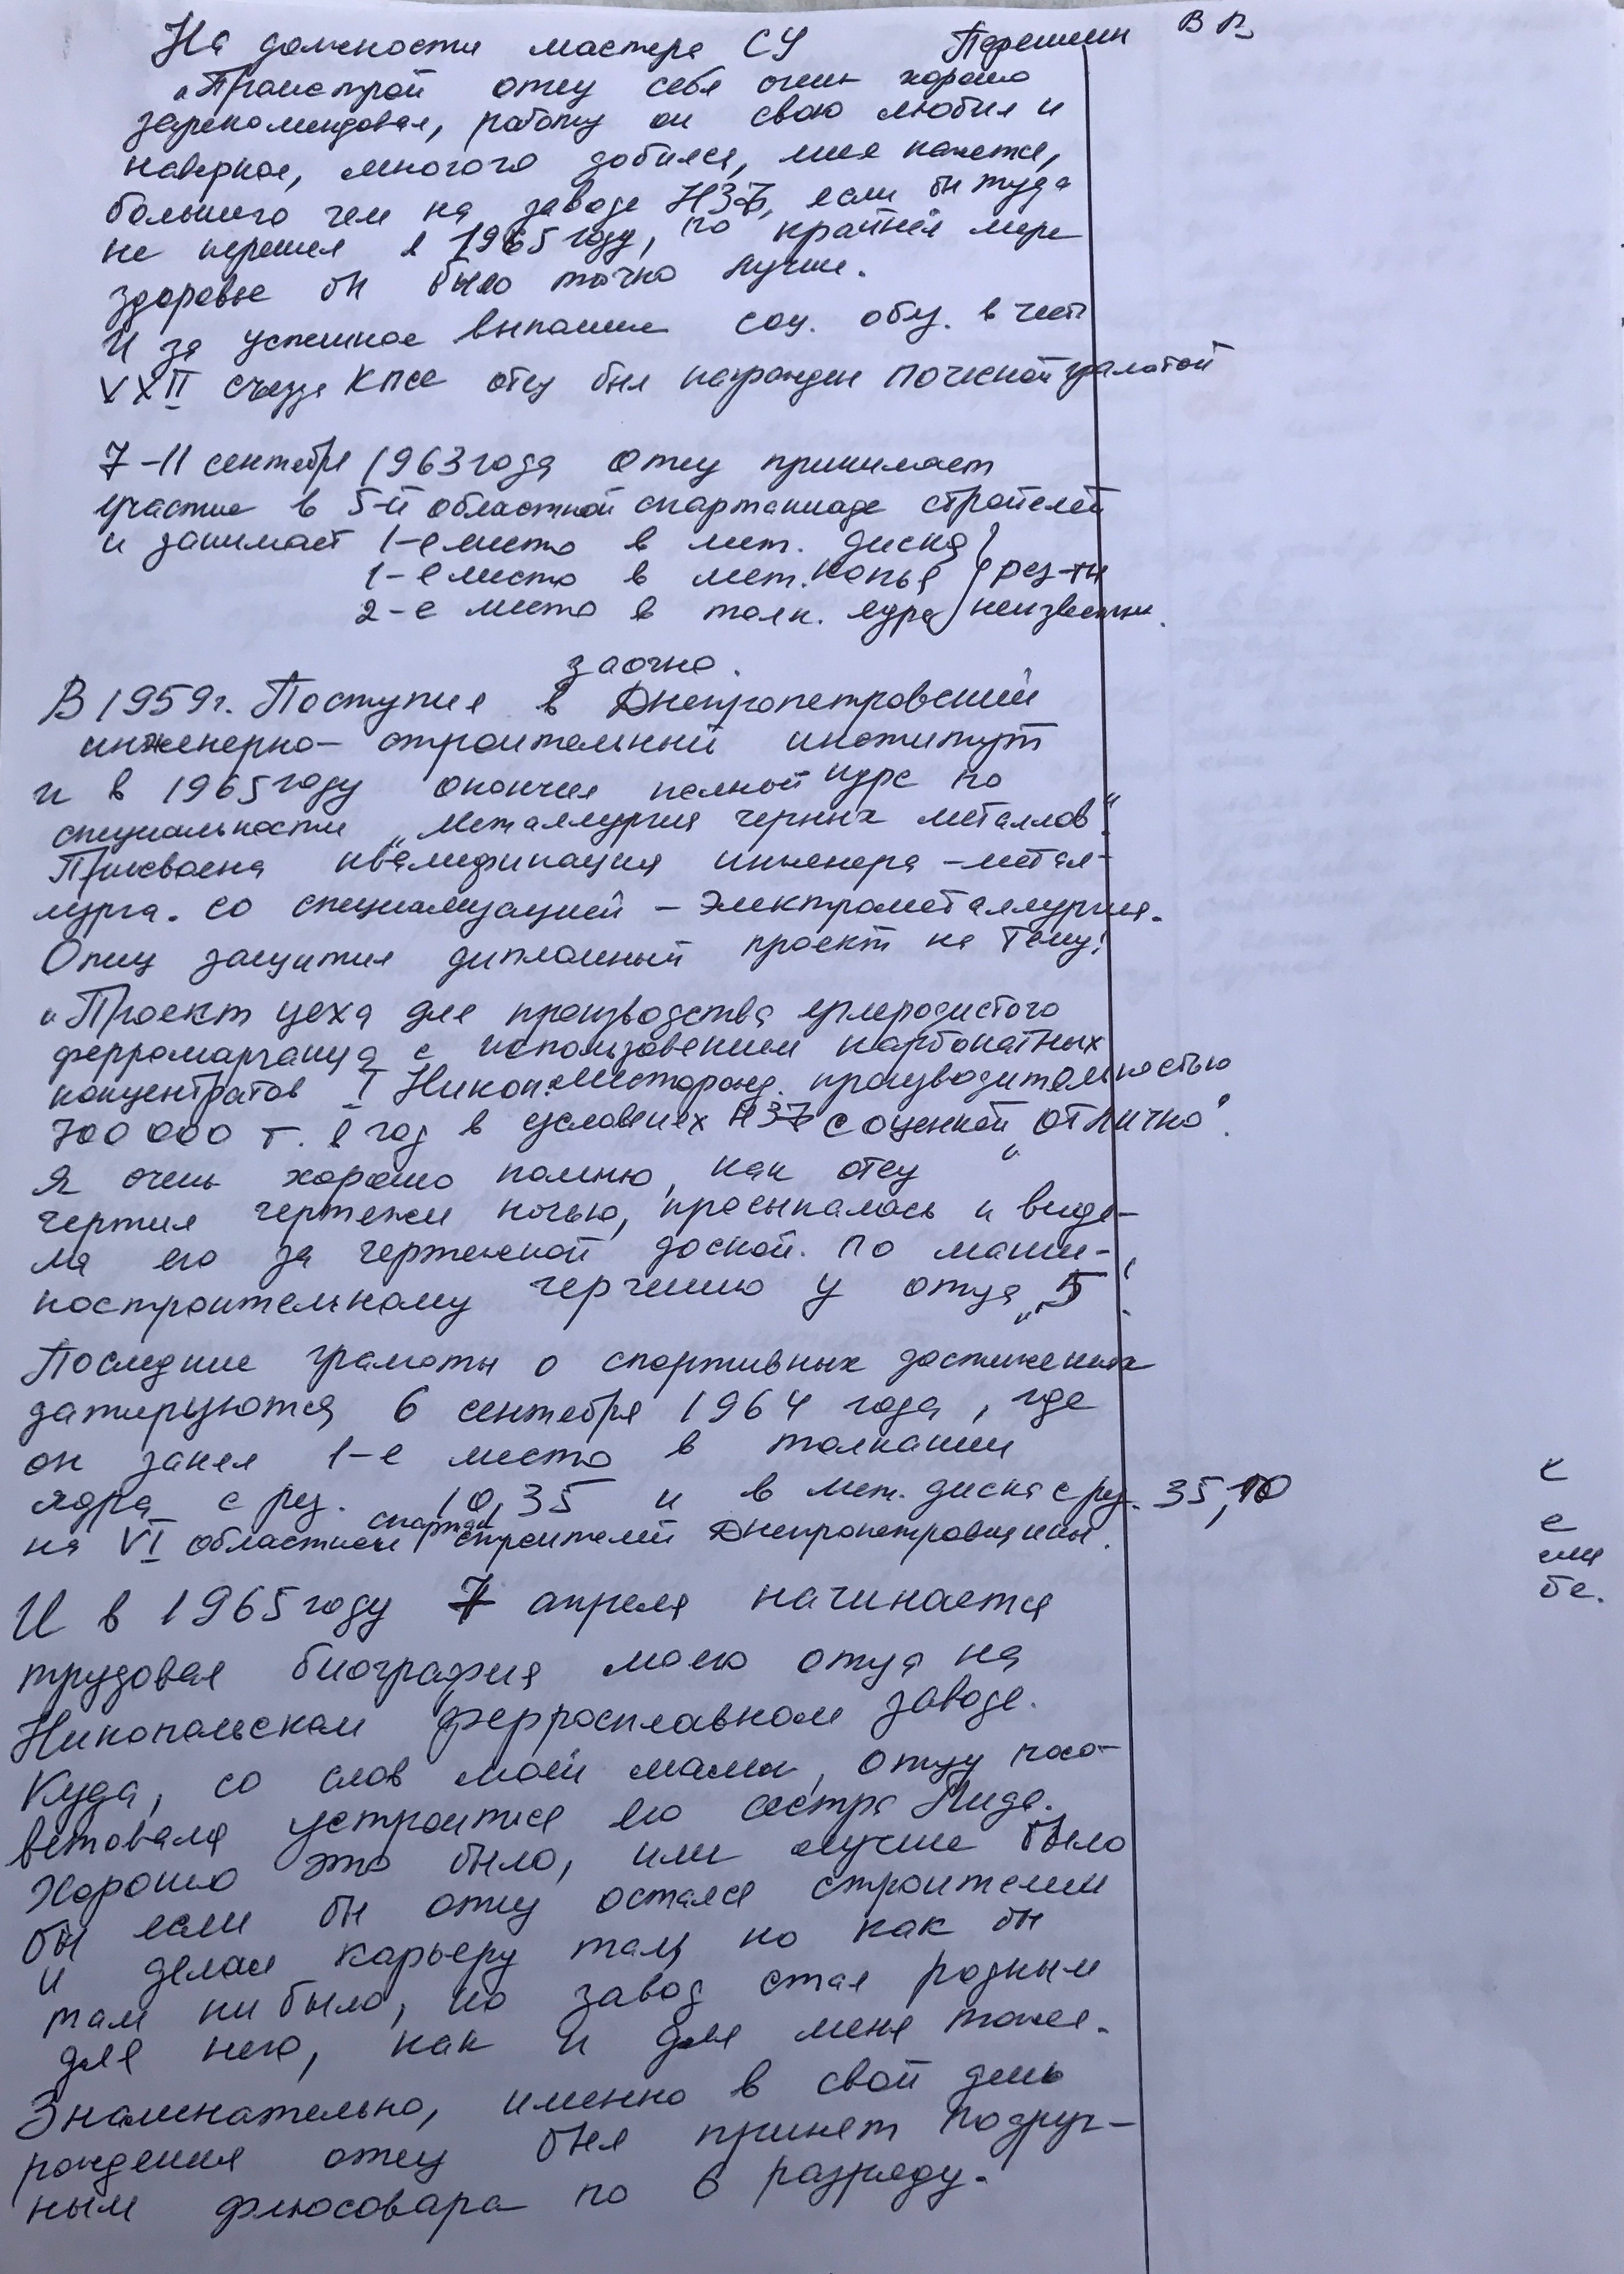 На должности мастера СУ Перешин В П
„Промстрой отец себя очень хорошо
зарекомендовал, работу он свою любил и
наверное, многого добился, мне кажется,
большего чем на заводе НЗФ, если бы туда
не перешел в 1965 году, по крайней мере
здоровье бы было точно лучше.
И за успешное выполнение соц. обяз. в честь
XXII съезда КПСС отец был награжден почесной грамотой
7-11 сентября 1963 года отец принимает
участие в 5-й областной спартакиаде строителей
и занимает 1-е место в мет. диска
1-е место в мет. копья } рез-ты
2-е место в толк. ядра неизвестны.
заочно.
В 1959г. Поступил в Днепропетровский
инженерно-строительный институт
и в 1965 году окончил полный курс по
специальности „Металлургия черных металлов".
Присвоена квалификация инженера-метал-
лурга. со специализацией - Электрометаллургия.
Отец защитил дипломный проект на тему:
„Проект цеха для производства углеродистого
ферромарганца с использованием карбонатных
концентратов I Никоп. Месторожд. производительностью
700 000 т. в год в условиях НЗФ с оценкой „отлично".
Я очень хорошо помню, как отец
чертил чертежи ночью, просыпалась и виде-
ла его за чертежной доской. По маши-
ностроительному черчению у отца „5".
Последние грамоты о спортивных достижениях
датируются 6 сентября 1964 года, где
он занял 1-е место в толкании
ядра с рез. 10,35 и в мет. диска с рез. 35,10
на VI областной спартак. строителей Днепропетровщины.
И в 1965 году 7 апреля начинается
трудовая биография моего отца на
Никопольском ферросплавном заводе.
Куда, со слов моей мамы, отцу посо-
ветовала устроится его сестра Лида.
Хорошо это было, или лучше было
бы если бы отец остался строителем
и делал карьеру там, но как бы
там ни было, но завод стал родным
для него, как и для меня тоже.
Знаменательно, именно в свой день
рождения отец был принят подруч-
ным флюсовара по 6 разряду.
е
ми
бе.